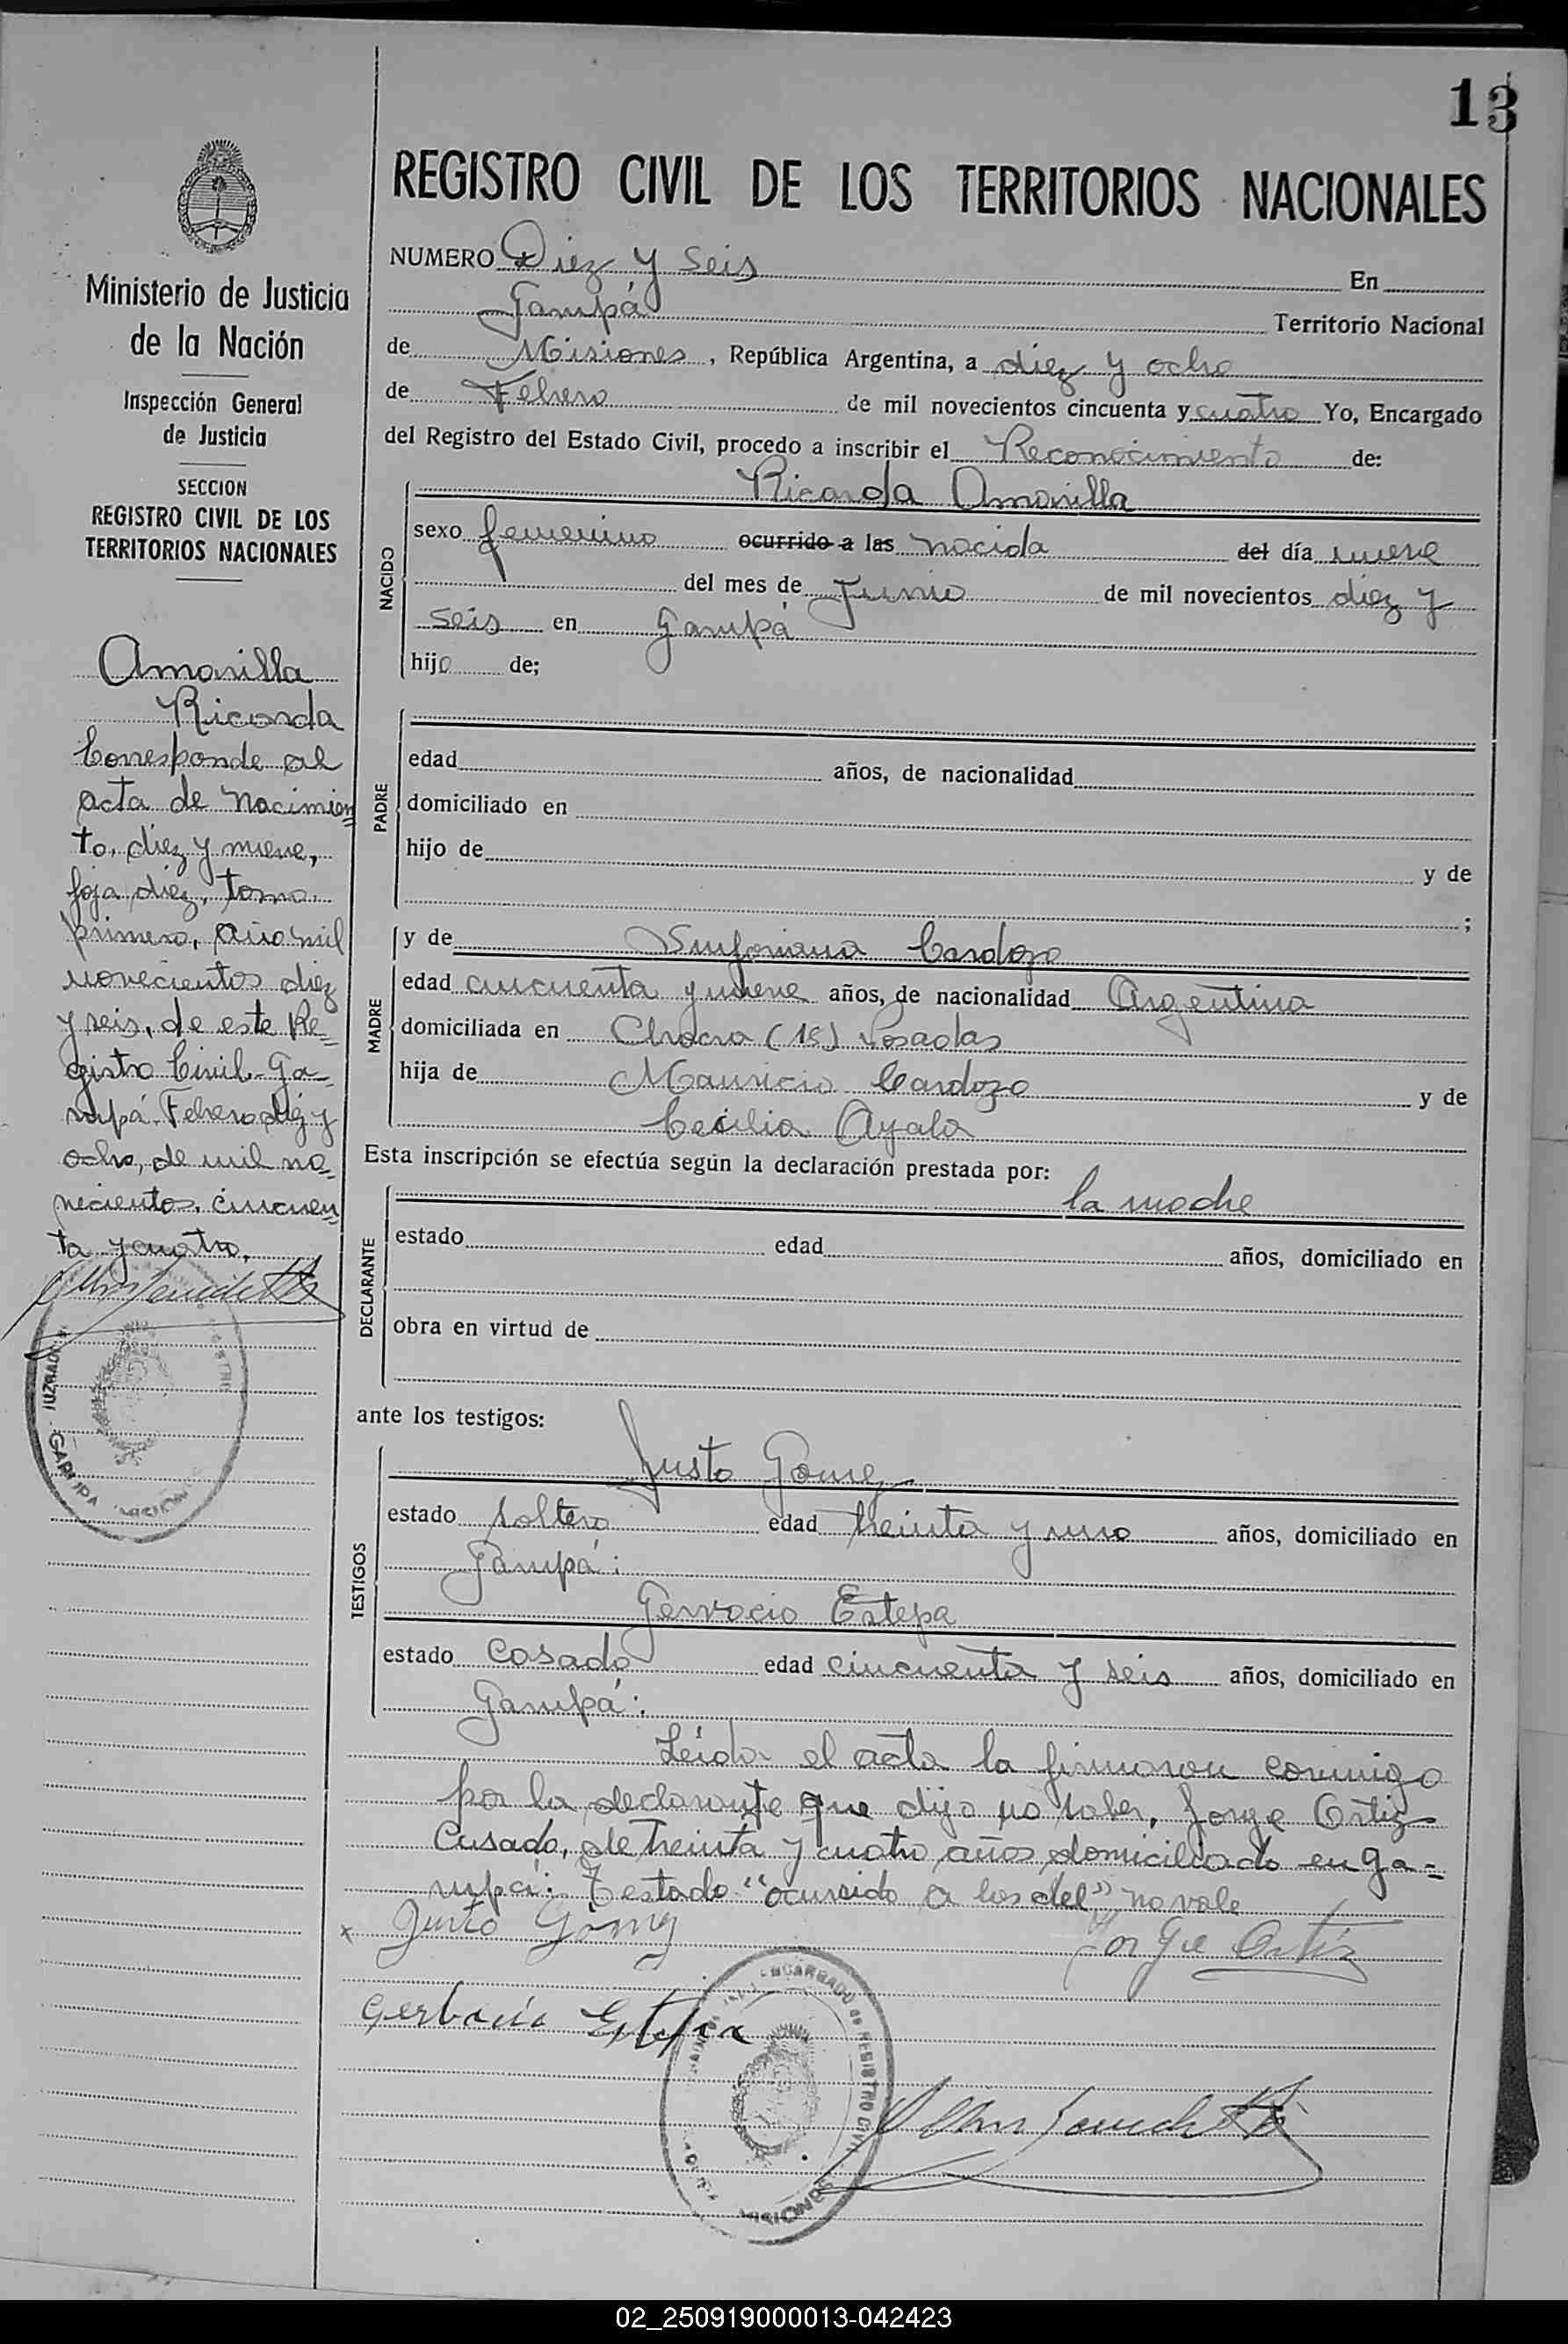 13
REGISTRO CIVIL DE LOS TERRITORIOS NACIONALES
Ministerio de Justicia
de la Nación
Inspección General
de Justicia
SECCION
REGISTRO CIVIL DE LOS
TERRITORIOS NACIONALES
Amarilla
Ricarda
Corresponde al
acta de nacimien
to, diez y nueve,
foja diez, tomo
primero, año mil
novecientos diez
y seis, de este Re
gistro Civil. Ga
rupá. Febrero diez y
ocho, de mil no
vecientos, cincuen
ta y cuatro.
NUMERO Diez y seis En
Garupá Territorio Nacional
de Misiones, República Argentina, a diez y ocho
de Febrero de mil novecientos cincuenta y cuatro Yo, Encargado
del Registro del Estado Civil, procedo a inscribir el Reconocimiento de:
NACIDO
Ricarda Amarilla
sexo femenino ocurrido a las nacida del día nueve
del mes de Junio de mil novecientos diez y
seis en Garupá
hijo de;
PADRE
edad años, de nacionalidad
domiciliado en
hijo de y de
;
MADRE
y de Sinforiana Cardozo
edad cincuenta y nueve años, de nacionalidad Argentina
domiciliada en Chacra (18) Posadas
hija de Mauricio Cardozo y de
Cecilia Ayala
Esta inscripción se efectúa según la declaración prestada por:
DECLARANTE
la madre
estado edad años, domiciliado en
obra en virtud de
ante los testigos:
TESTIGOS
Justo Gomez
estado soltero edad treinta y uno años, domiciliado en
Garupá:
Gervacio Estepa
estado casado edad cincuenta y seis años, domiciliado en
Garupá:
Leida el acta la firmaron conmigo
por la declarante que dijo no saber, Jorge Ortiz
Casado, de treinta y cuatro años domiciliado en Ga-
rupá: Testado "ocurrido a las del" no vale
x Justo Gómez Jorge Ortiz
Gerbacio Estepa
ENCARGADO de REGISTRO CIVIL
MISIONES
02_250919000013-042423